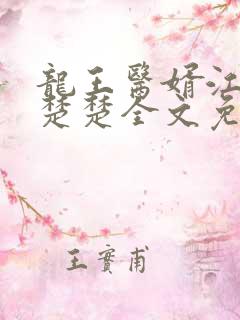 龍王醫婿江
楚楚全文免
王實甫